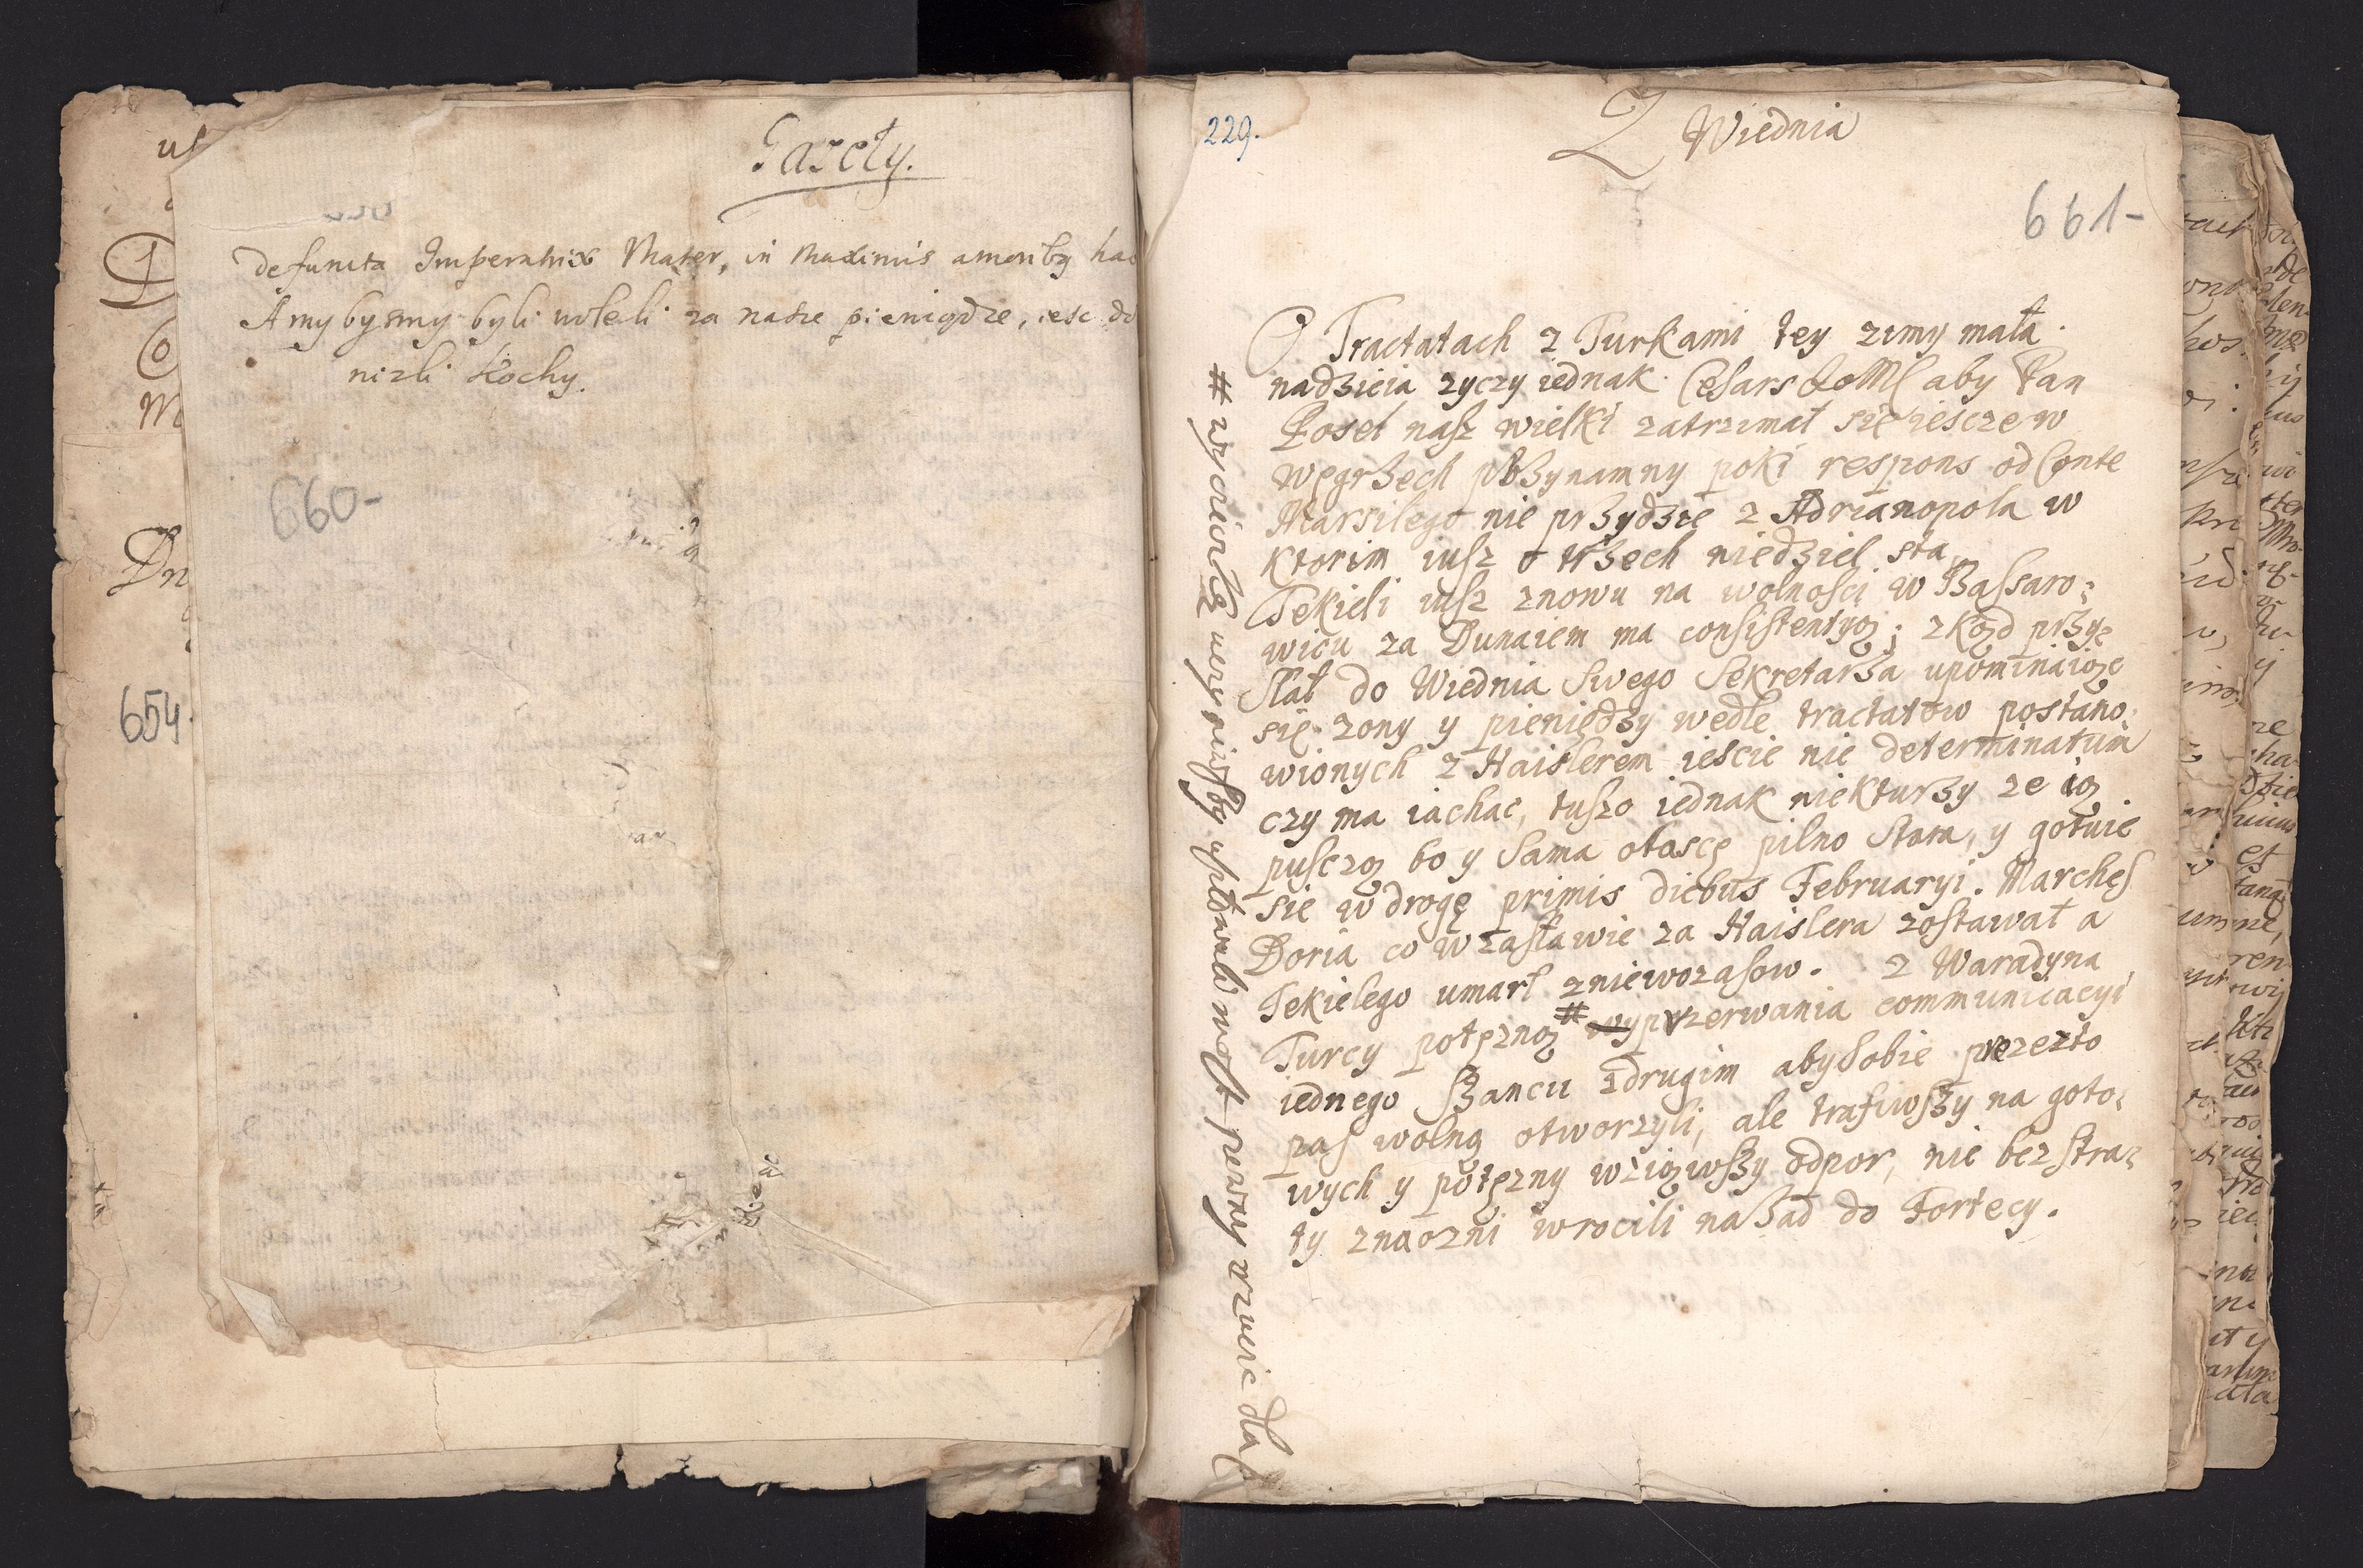 Gazety.
defuncta Imperatrix Mater, in maximis amoribg
A my bysmy byli woleli za nasze pieniądze, iesc
nizli kochy.
660-
654.
Dn
229.
Z Wiednia
661-
O Tractatach z Turkami tey zimy mała
nadzieia zyczy iednak Cesars aby Pan
Poseł nasz wielki zatrzimał się iescze w
Węgrzech przynamny poki respons od Conte
Marsilego nie przydzie z Adrianopola w
ktorim iusz o trzech niedziel sta
Tekieli iusz znowu na wolnosci w Bassaro:
wicu za Dunaiem ma consistentyą; zkąd przy:
słał do Wiednia swego Sekretarza upominaiąc
się zony y pieniędzy wedle tractatow postano:
wionych z Haislerem iescie nie determinatum
czy ma iachac, tuszo iednak niekturzy ze ią
pusczą bo y sama otoscę pilno stara, y gotuie
sie w drogę primis diebus Februaryi. Marches
Doria co w zastawie za Haislera zostawał a
Tekielego umarł zniewczasow. Z Waradyna
Turcy potęzną # przerwania communicacyi
iednego szancu zdrugim aby sobie przezto
pas wolną otworzyli, ale trafiwszy na goto:
wych y potęzny wziąwszy odpor, nie bez stra:
ty znaczni wrocili nazad do Fortecy.
# wycieczkę uczyniwszy usiłowali most pewny wrzucic dla